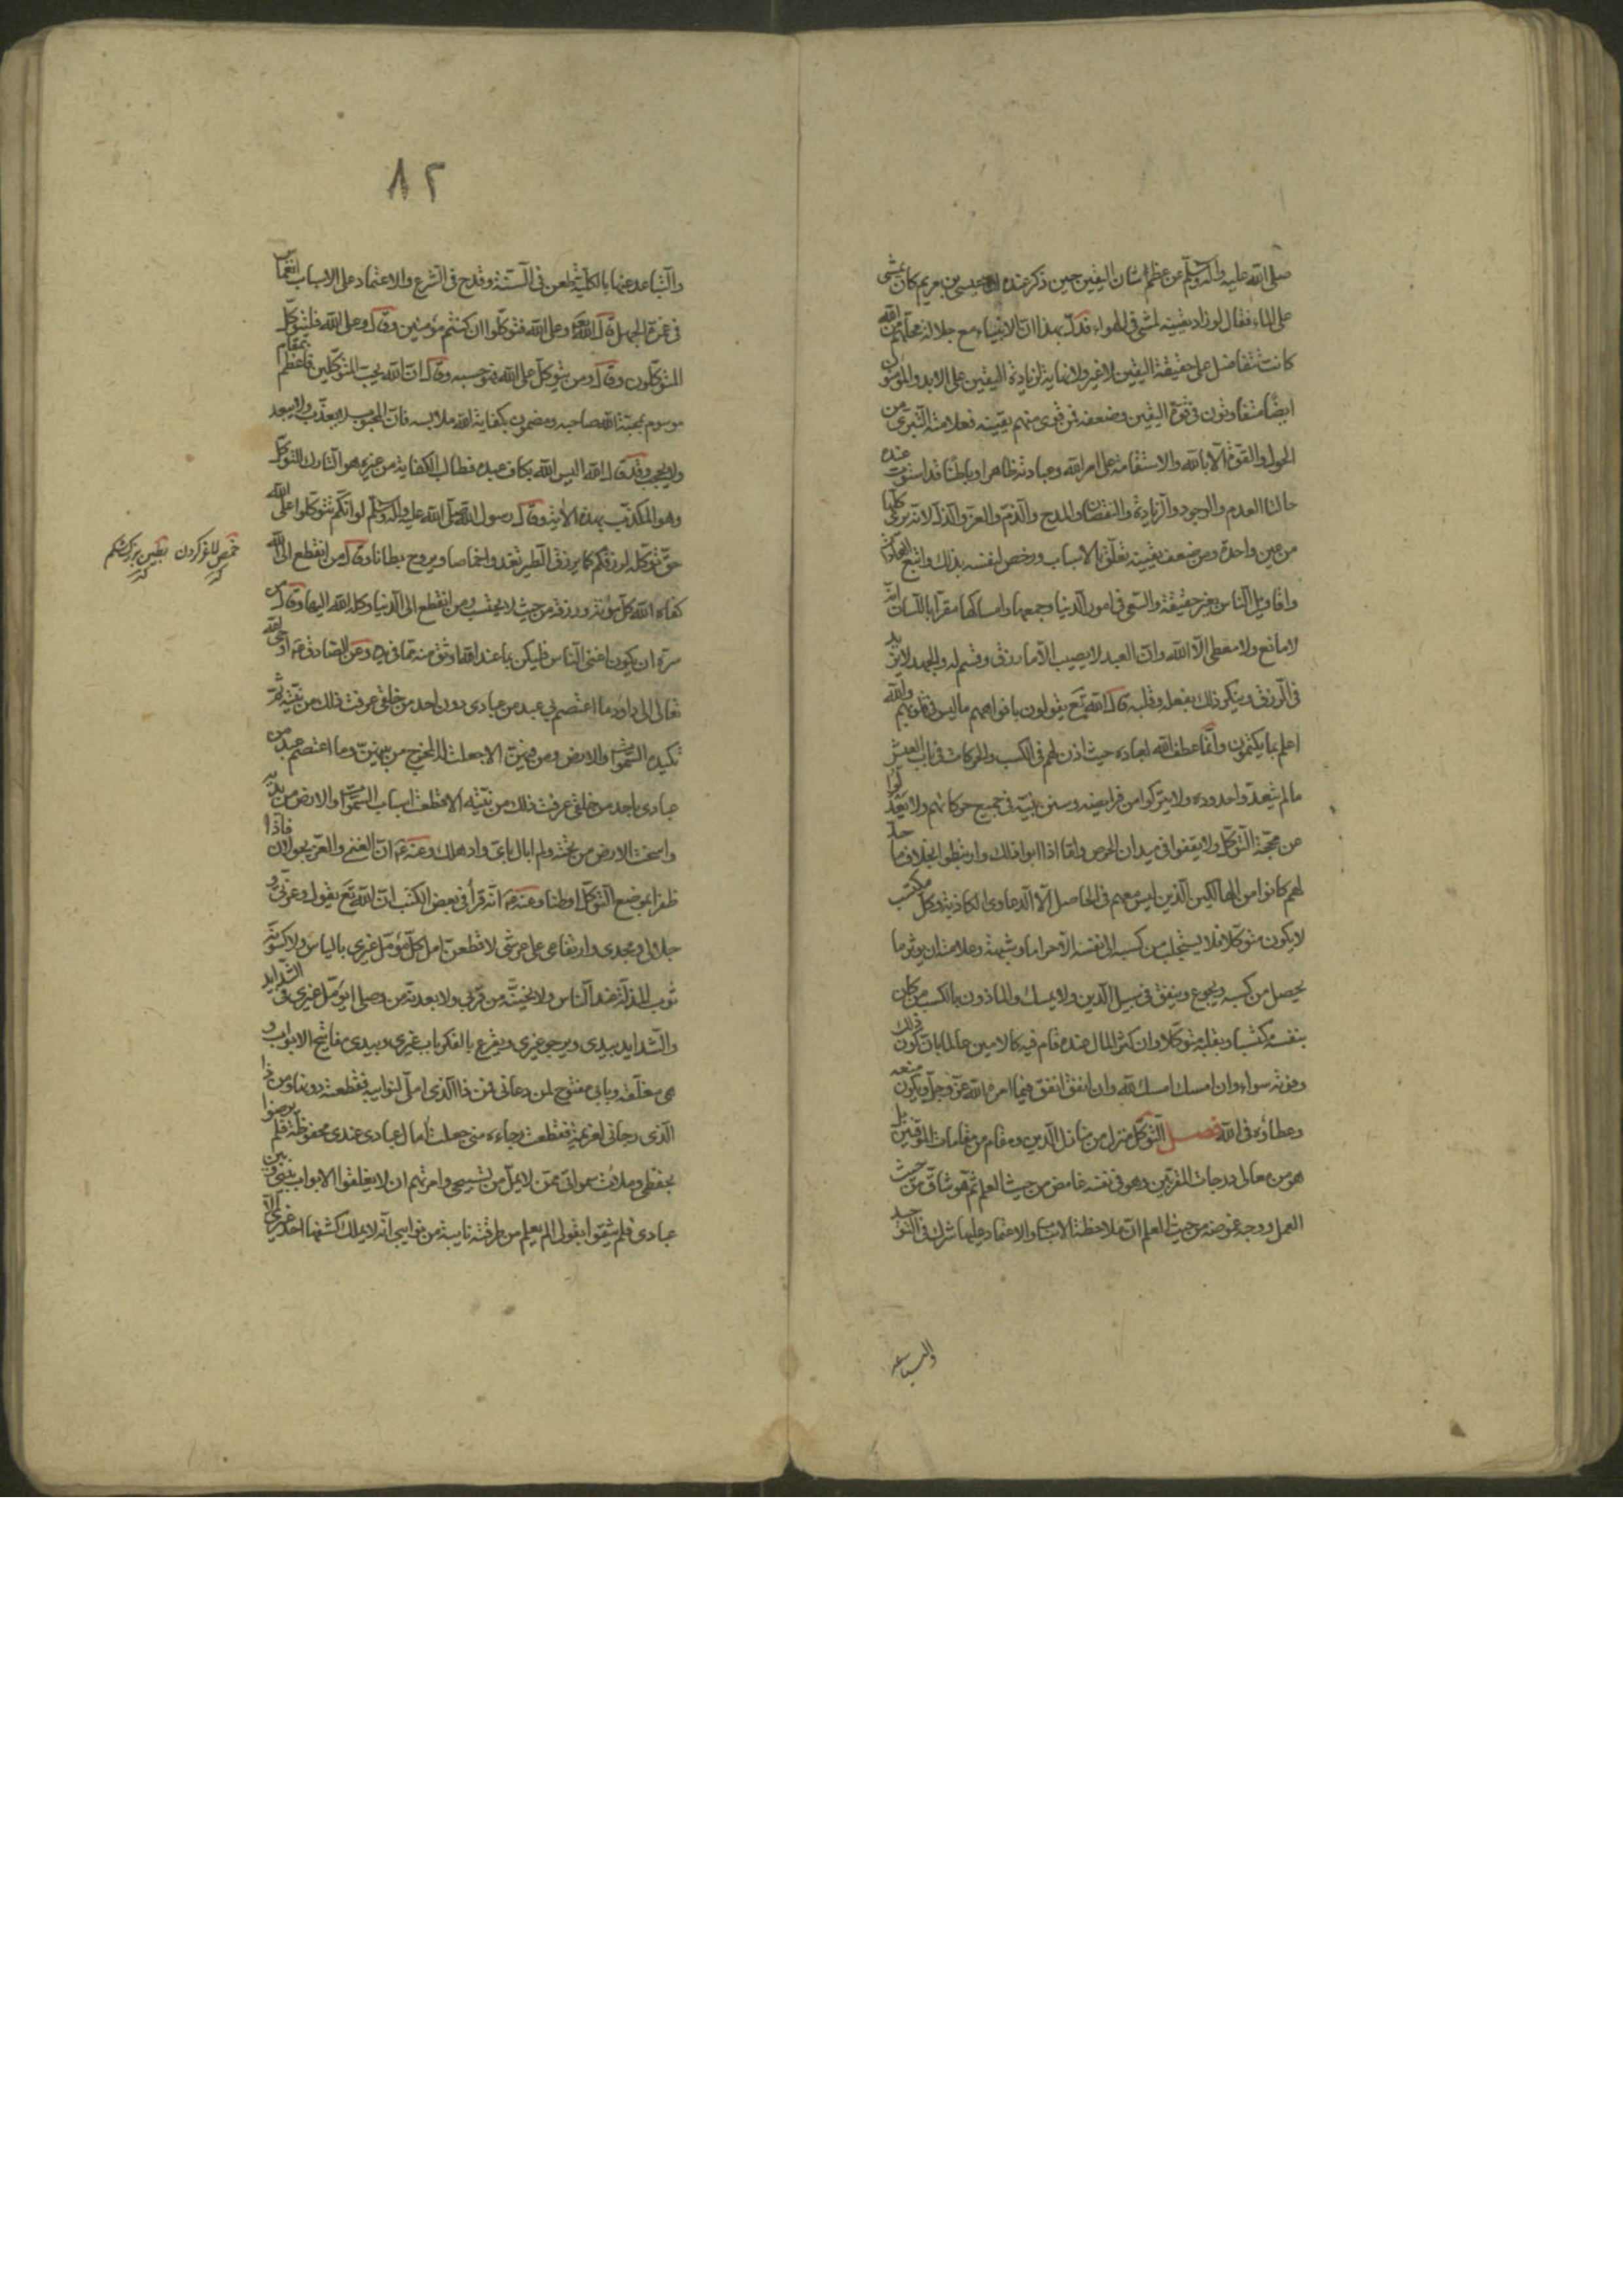 صلى الله عليه وآله وسلم عن عظم شان اليقين حين ذكر عنده ان عيسى بن مريم كان يمشى
على الماء فقال لو زاد يقينه لمشى فى الهواء فدل بهذا ان الانبياء مع جلالة محلهم من الله
كانت تتفاضل على حقيقة اليقين لا غير ولا نهاية لزيادة اليقين على الابد والمؤمنون
ايضا متفاوتون فى قوة اليقين وضعفه فمن قوى منهم يقينه فعلامته التبرى من
الحول والقوة الا بالله والاستقامة على امر الله وعبادته ظاهرا وباطنا قد استوت عنده
حالتا العدم والوجود والزيادة والنقصان والمدح والذم والعز والذل لانه يرى كلها
من عين واحدة ومن ضعف يقينه تعلق بالاسباب ورخص لنفسه بذلك واتبع العادات
واقاويل الناس بغير حقيقة والسعى فى امور الدنيا وجمعها وامساكها مقرا باللسان انه
لا مانع ولا معطى الا الله وان العبد لا يصيب الا ما رزق وقسم له والجهد لا يزيد
فى الرزق وينكر ذلك بفعله وقلبه قال الله تع يقولون بافواههم ما ليس فى قلوبهم والله
اعلم بما يكتمون وانما عطف الله لعباده حيث اذن لهم فى الكسب والحركات فى باب العيش
ما لم يتعدوا حدوده ولا يتركوا من فرايضه وسنن نبيه فى جميع حركاتهم ولا يعدلوا
عن محجة التوكل ولا يقفوا فى ميدان الحرص واما اذا ابوا ذلك وارتبطوا بخلاف ما حد
لهم كانوا من الهالكين الذين ليس معهم فى الحاصل الا الدعاوى الكاذبة وكل مكتسب
لا يكون متوكلا فلا يستجلب من كسبه الى نفسه الا حراما وشبهة وعلامته ان يوثر ما
يحصل من كسبه ويجوع وينفق فى سبيل الدين ولا يمسك والماذون بالكسب من كان
بنفسه مكتسبا وبقلبه متوكلا وان كثر المال عنده قام فيه كالامين عالما بان كون ذلك
وفوته سواء وان امسك امسك لله وان انفق انفق فيما امره الله عز وجل ويكون منعه
وعطاؤه فى الله فصل التوكل منزل من منازل الدين ومقام من مقامات الموقنين بل
هو من معالى درجات المقربين وهو فى نفسه غامض من حيث العلم ثم هو شاق من حيث
العمل ووجه غموضه من حيث العلم ان ملاحظة الاسباب والاعتماد عليها شرك فى التوحيد
والتباعد
٨٢
والتباعد عنها بالكلية طعن فى السنة وقدح فى الشرع والاعتماد على الاسباب انغماس
فى غمرة الجهل قال الله تع وعلى الله فتوكلوا ان كنتم مؤمنين وقال وعلى الله فليتوكل
المتوكلون وقال ومن يتوكل على الله فهو حسبه وقال ان الله يحب المتوكلين فاعظم بمقام
موسوم بمحبة الله صاحبه ومضمون بكفاية الله ملابسه فان المحبوب لا يعذب ولا يبعد
ولا يحجب وقد قال الله اليس الله بكاف عبده فطالب الكفاية من غيره هو التارك للتوكل
وهو المكذب بهذه الاية وقال رسول الله صلى الله عليه وآله وسلم لو انكم تتوكلوا على الله
حق توكله لرزقكم كما يرزق الطير تغدو اخماصا ويروح بطانا وقال من انقطع الى الله
كفاه الله كل مؤنة ورزقه من حيث لا يحتسب ومن انقطع الى الدنيا وكله الله اليها وقال من
سره ان يكون اغنى الناس فليكن بما عند الله اوثق منه بما فى يده وعن الصادق ع اوحى الله
تعالى الى داود ما اعتصم بى عبد من عبادى دون احد من خلقى عرفت ذلك من نيته ثم
تكيده السموات والارض ومن فيهن الا جعلت له المخرج من بينهن وما اعتصم عبد من
عبادى باحد من خلقى عرفت ذلك من نيته الا قطعت اسباب السموات والارض من يديه
واسخت الارض من تحته ولم ابال باى واد هلك وعنه ع ان الغنى والعز يجولان فاذا
ظفرا بموضع التوكل اوطنا وعنه ع انه قرأ فى بعض الكتب ان الله تع يقول وعزتى و
جلالى ومجدى وارتفاعى على عرشى لاقطعن امل كل مؤمل غيرى بالياس ولاكسونه
ثوب المذلة عند الناس ولانحينه من قربى ولابعدنه من وصلى ايؤمل غيرى فى الشدايد
والشدايد بيدى ويرجو غيرى ويقرع بالفكر باب غيرى وبيدى مفاتيح الابواب و
هى مغلقة وبابى مفتوح لمن دعانى فمن ذا الذى املنى لنوايبه فقطعته دونها ومن ذا
الذى رجانى لعظيمة فقطعت رجاءه منى جعلت آمال عبادى عندى محفوظة فلم يرضوا
بحفظى وملأت سمواتى ممن لا يمل من تسبيحى وامرتهم ان لا يغلقوا الابواب بينى وبين
عبادى فلم يثقوا بقولى الم يعلم من طرقته نايبة من نوايبى انه لا يملك كشفها احد غيرى الا
خمص لاغر كردن بطين بزرك شكم